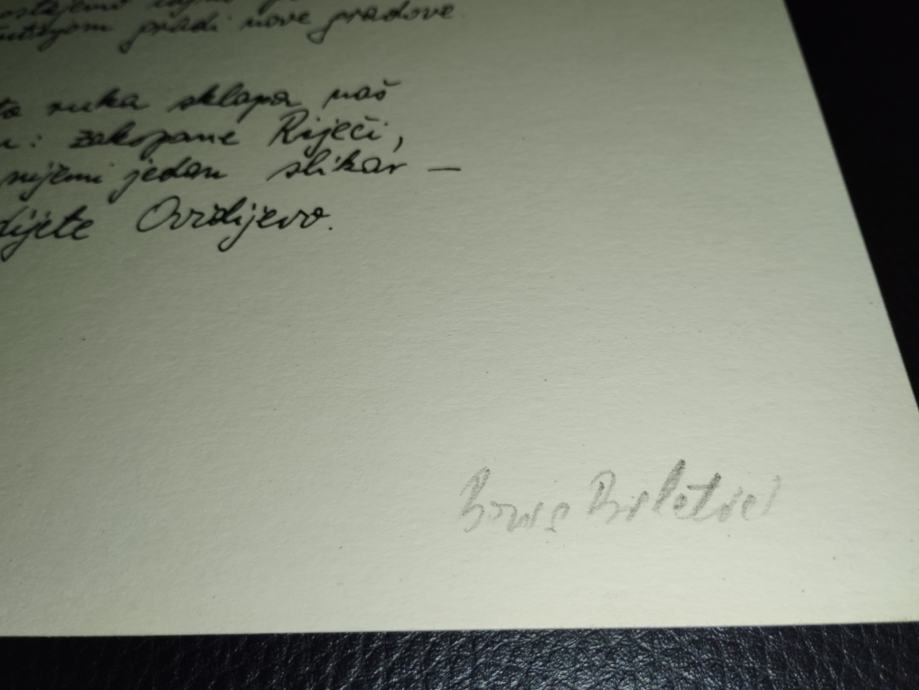 gradi nove gradove
ruka sklapa naš
zakopane Riječi,
nijemi jedan slikar —
dijete Ovidijevo.
Boris Biletić